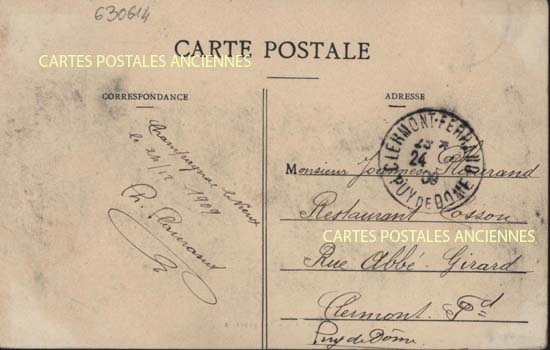 630614
CARTE POSTALE
CARTES POSTALES ANCIENNES
CORRESPONDANCE
ADRESSE
le 24/12 1909
CLERMONT-FERRAND
24
09
PUY DE DOME
Monsieur
Restaurant Cosson
CARTES POSTALES ANCIENNES
Rue Abbé Girard
Clermont Fd
Puy de Dôme